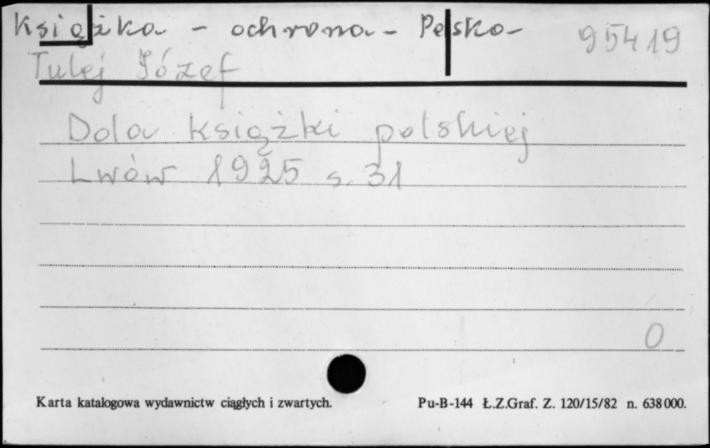 Książka - ochrona - Polska- 95419
Tulej Józef
Dola książki polskiej
Lwów 1925 s. 31
0
Karta katalogowa wydawnictw ciągłych i zwartych. Pu-B-144 Ł.Z.Graf. Z. 120/15/82 n. 638000.